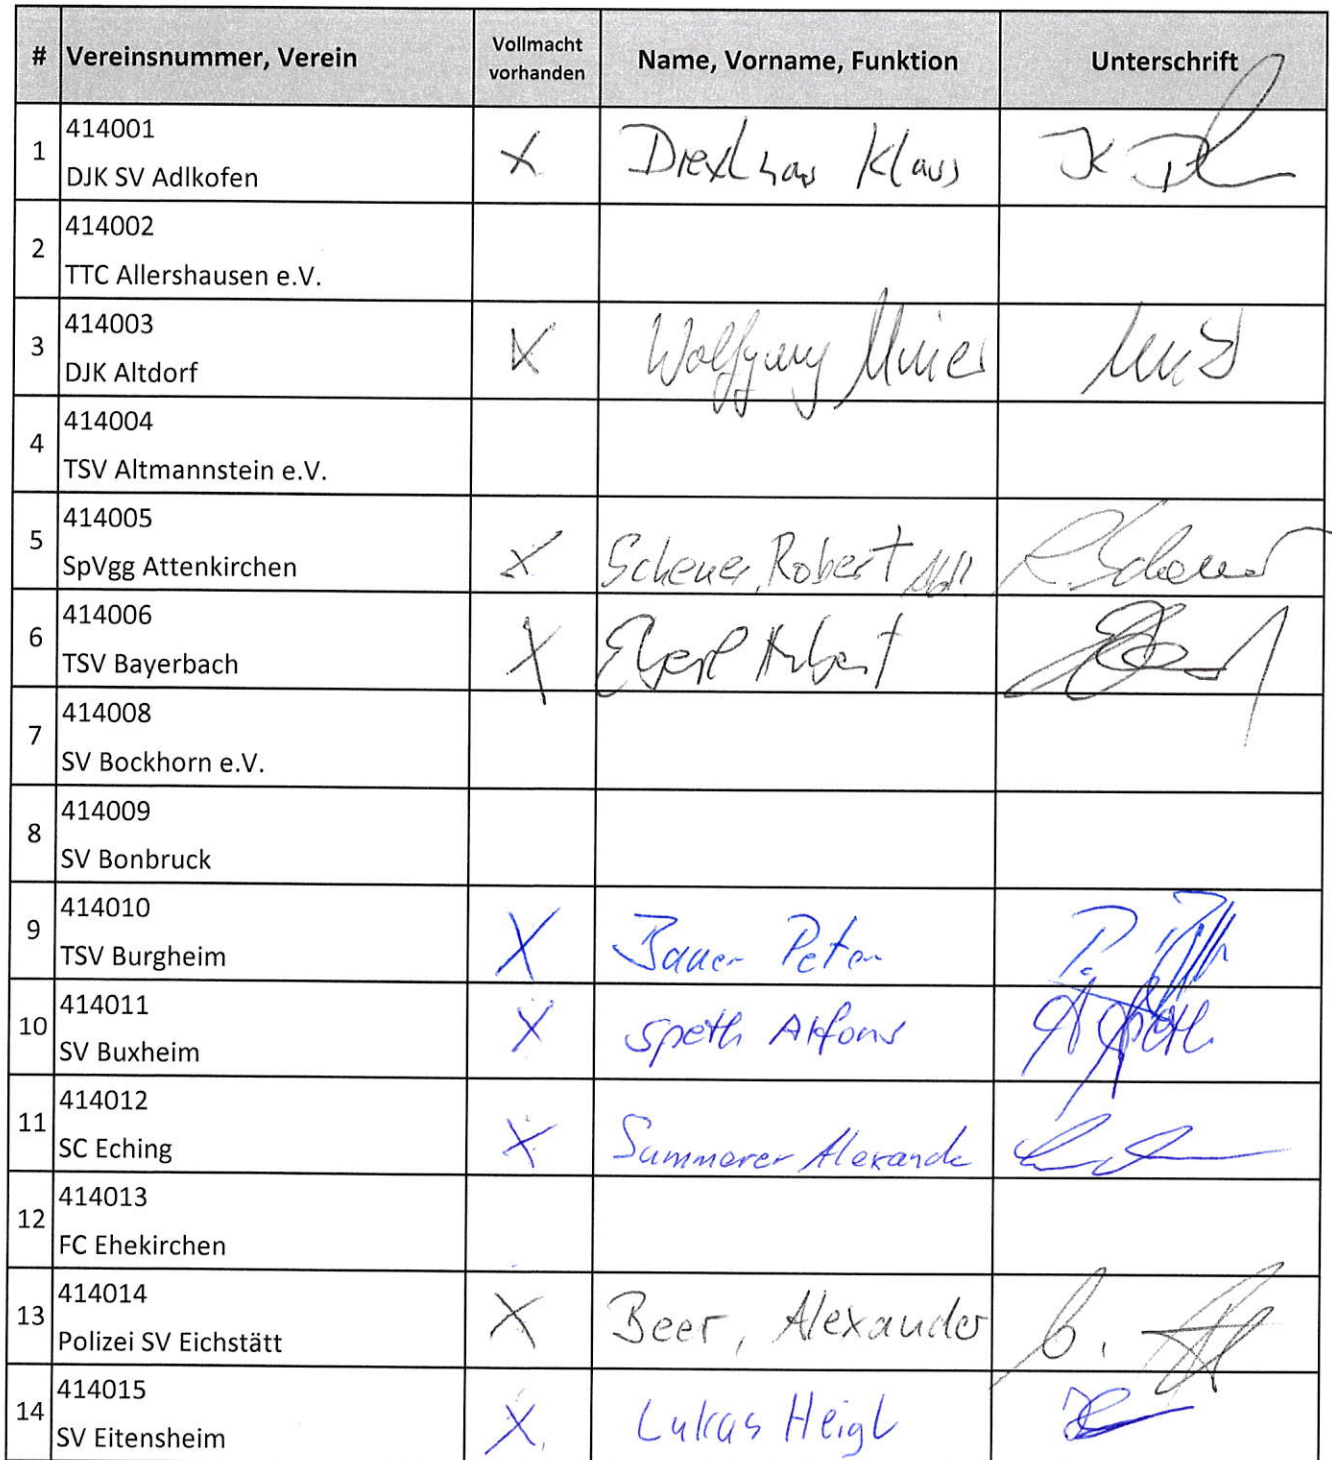 # Vereinsnummer, Verein Vollmacht vorhanden Name, Vorname, Funktion Unterschrift
1 414001
DJK SV Adlkofen X Klaus
2 414002
TTC Allershausen e.V.
3 414003
DJK Altdorf X Wolfgang
4 414004
TSV Altmannstein e.V.
5 414005
SpVgg Attenkirchen X Robert
6 414006
TSV Bayerbach X
7 414008
SV Bockhorn e.V.
8 414009
SV Bonbruck
9 414010
TSV Burgheim X Bauer Peter
10 414011
SV Buxheim X Speth Alfons
11 414012
SC Eching X Summerer
12 414013
FC Ehekirchen
13 414014
Polizei SV Eichstätt X Beer, Alexander
14 414015
SV Eitensheim X Lukas Heigl